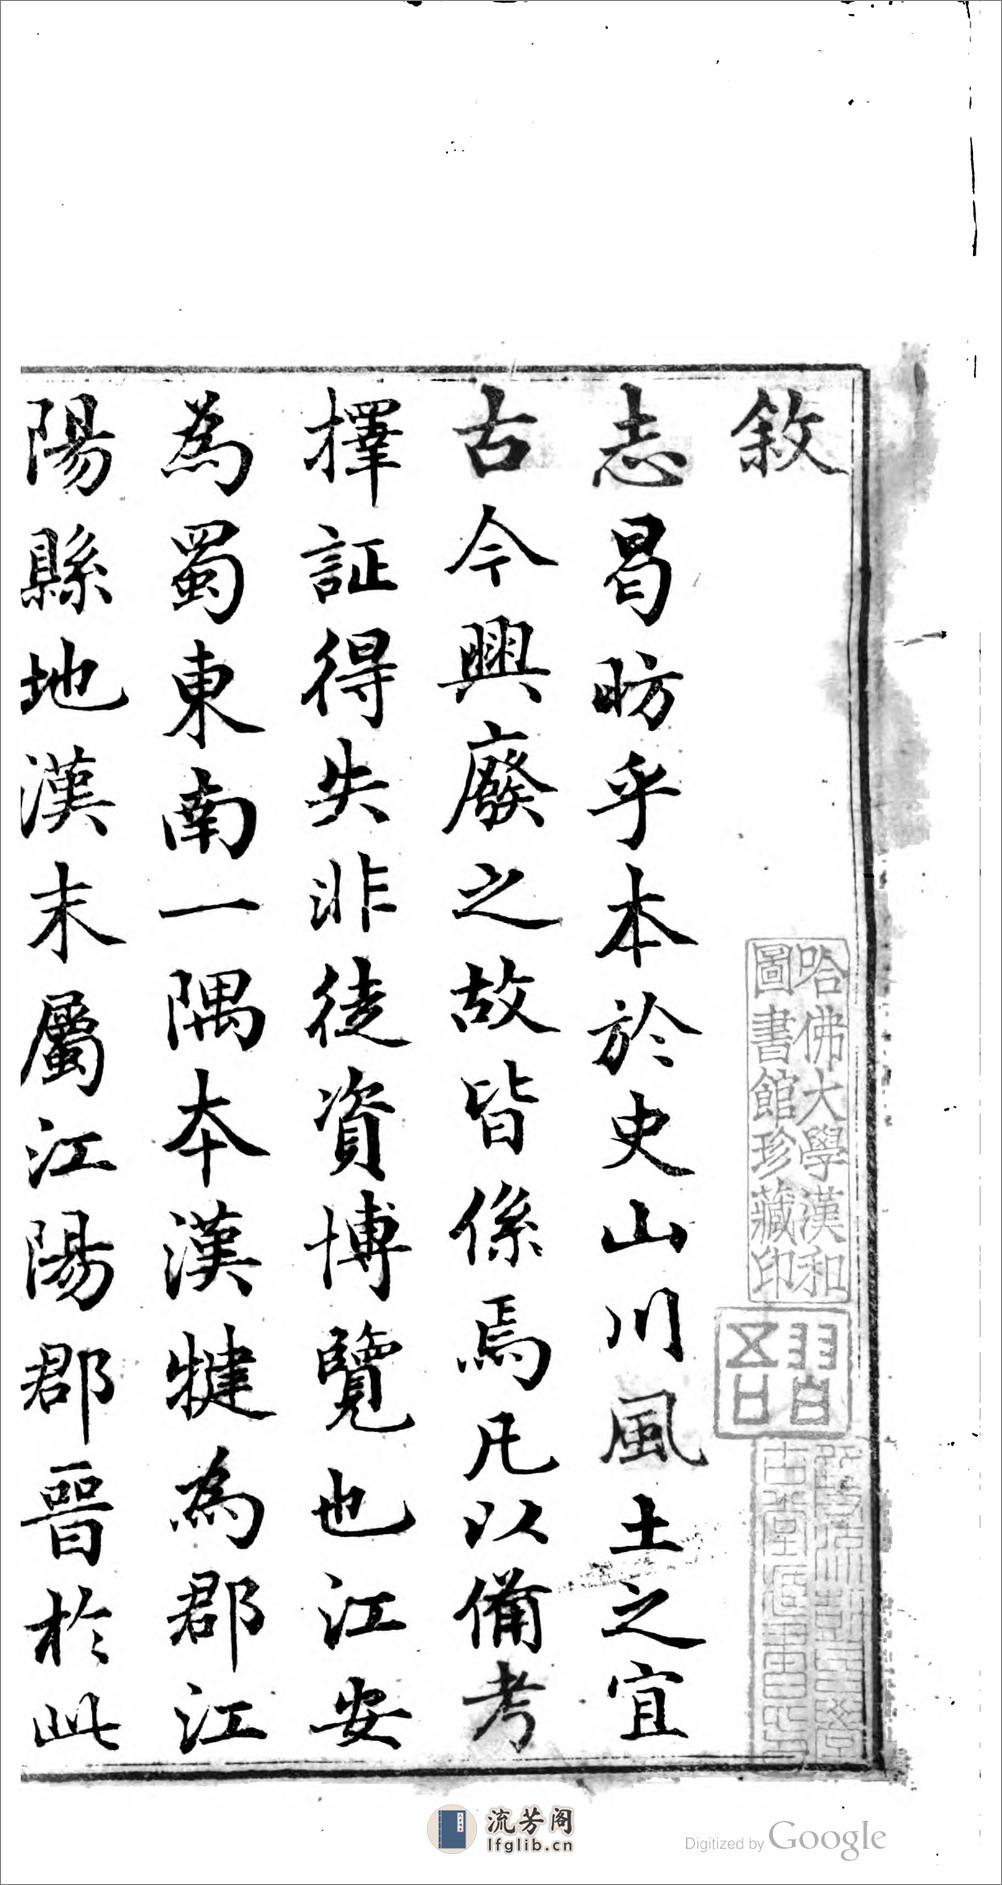 敘
志曷昉乎本於史山川風土之宜
古今興廢之故皆係焉凡以備考
擇証得失非徒資博覽也江安
為蜀東南一隅本漢犍為郡江
陽縣地漢末屬江陽郡晉於此
哈佛大學漢和
圖書館珍藏印
流芳阁
lfglib.cn
Digitized by Google